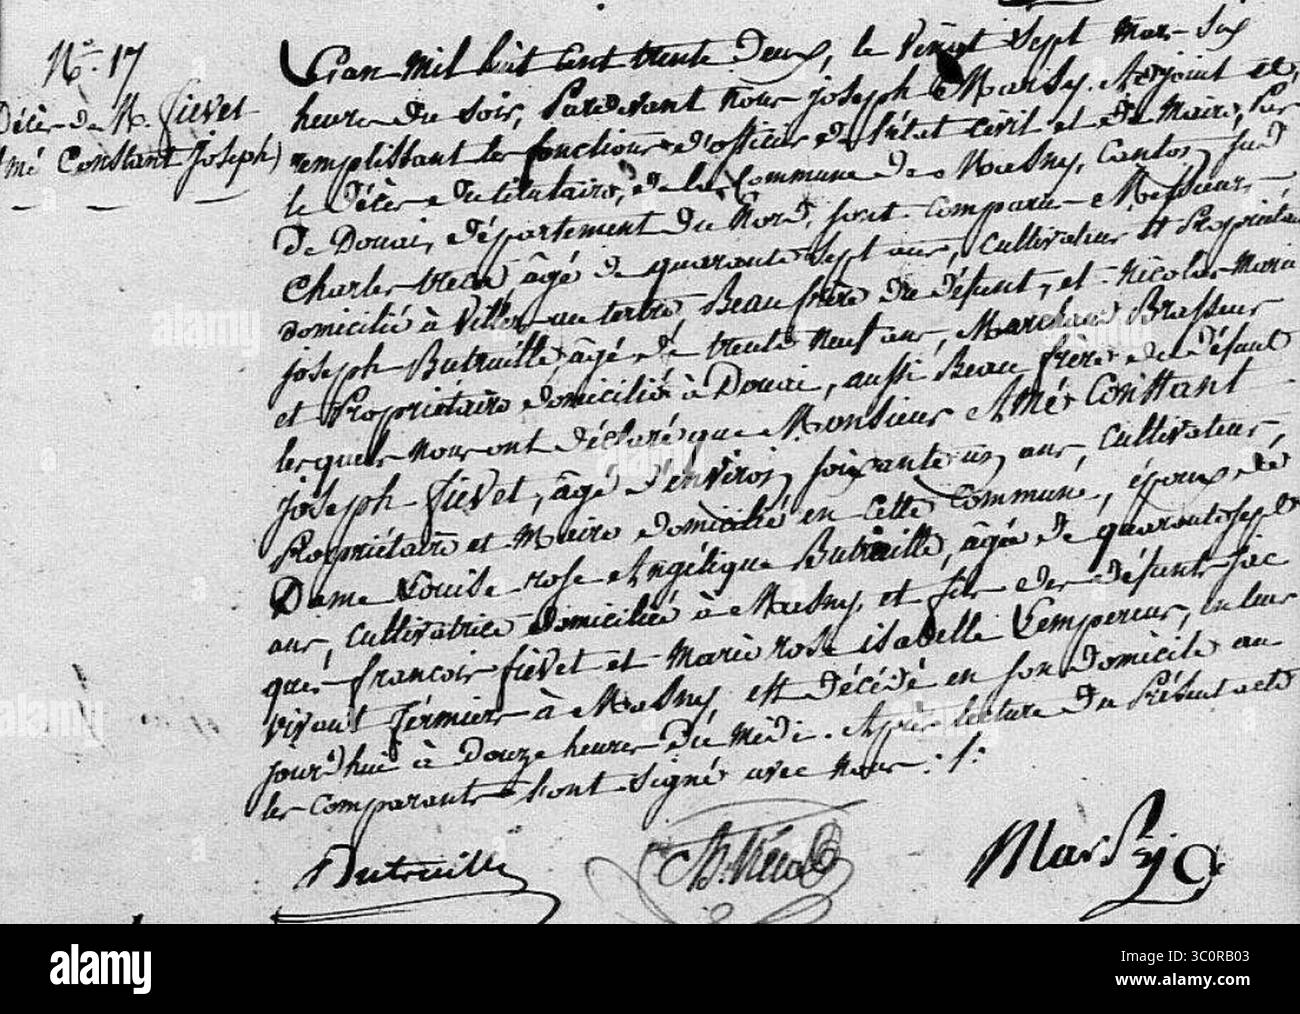 N.° 17
Décès de M. fiévet
Amé Constant joseph
L'an mil huit cent trente deux, le vingt sept mars six
heures du soir, Pardevant nous joseph Marsy, Adjoint et
remplissant les fonctions d'officier de l'état civil et de Maire, Par
le décès du titulaire, de la Commune de Masny, canton sud
de Douai, département du Nord, sont comparus Messieurs
Charles tréca, âgé de quarante sept ans, cultivateur et Propriétaire
domicilié à Villers au tertre, Beau frère du défunt, et Nicolas Marie
joseph Butruille, âgé de trente neuf ans, Marchand Brasseur
et Propriétaire domicilié à Douai, aussi Beau frère du défunt
lesquels nous ont déclaré que Monsieur Amé Constant
joseph fiévet, âgé d'environ soixante un ans, cultivateur,
Propriétaire et Maire domicilié en cette commune, époux de
Dame Louise rose Angélique Butruille, âgée de quarante sept
ans, cultivatrice domiciliée à Masny, et fils des défunts jac
ques françois fiévet et Marie rose isabelle Lempereur, en leur
vivant fermiers à Masny, est décédé en son domicile au
jourd'hui à Douze heures du Midi. Après lecture du Présent acte
les comparants l'ont signé avec nous.
Butruille
Ch. Tréca
Marsy
alamy
Image ID: 3C0RB03
www.alamy.com